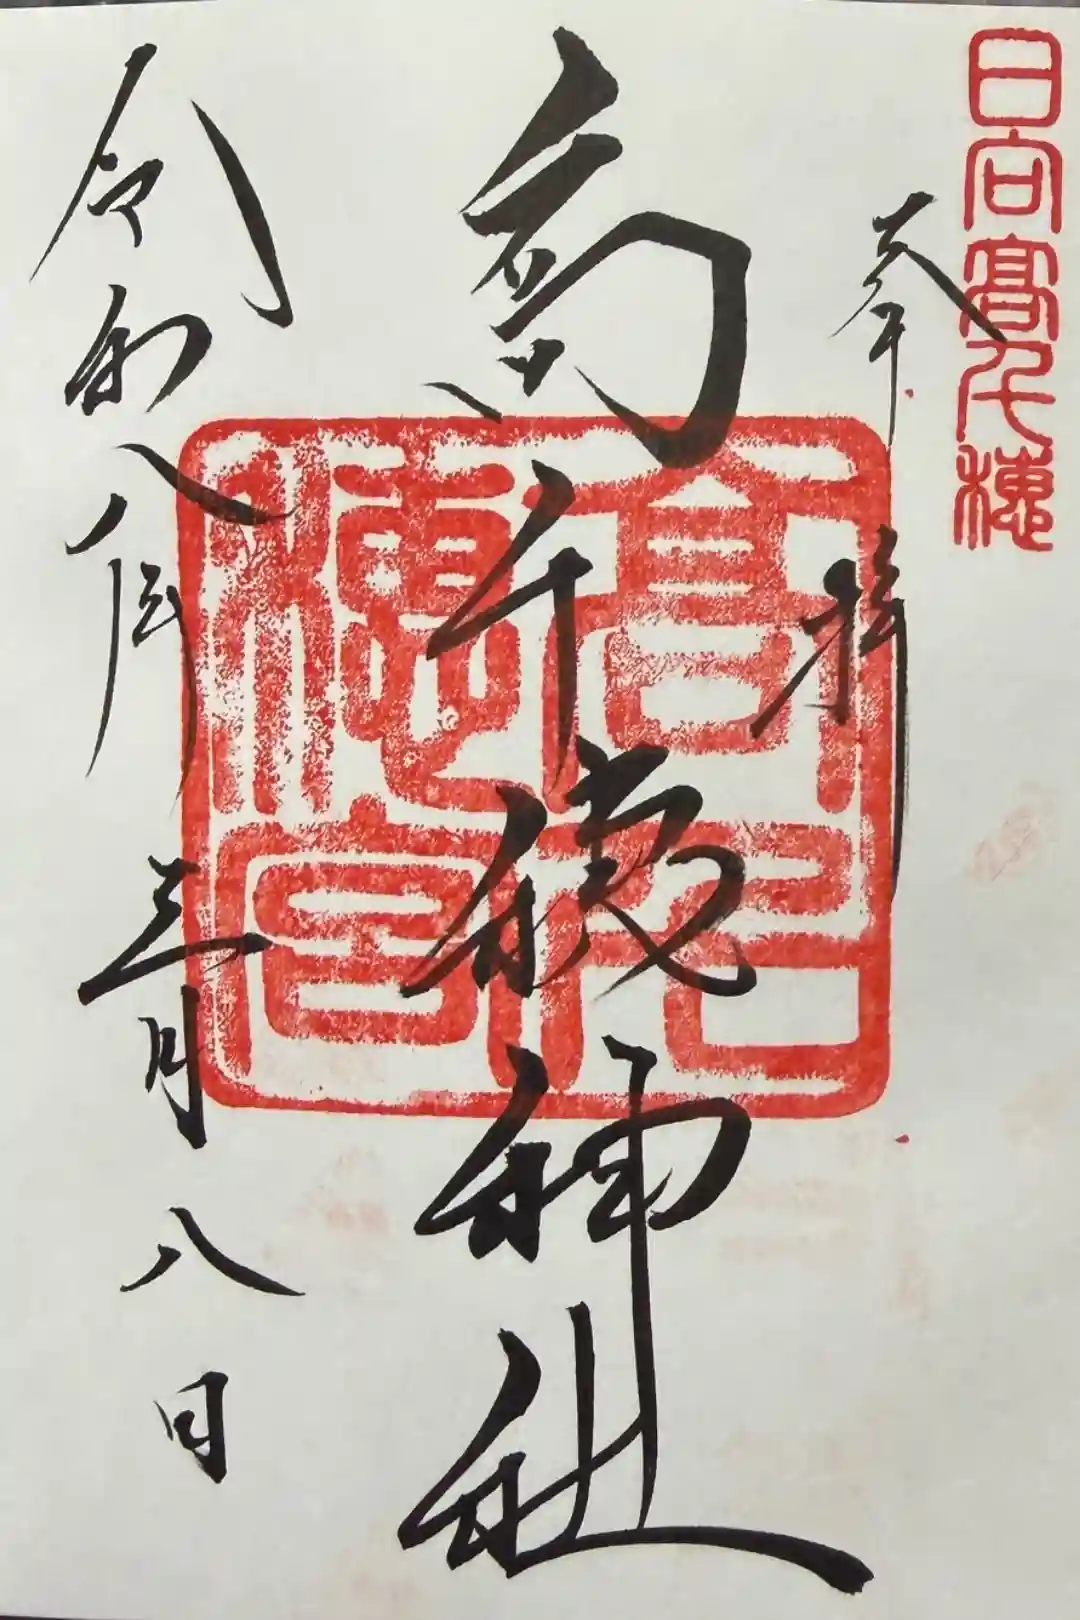 日向髙千穂
奉拝
高千穂神社
髙
穂宮
令和八
三月八日